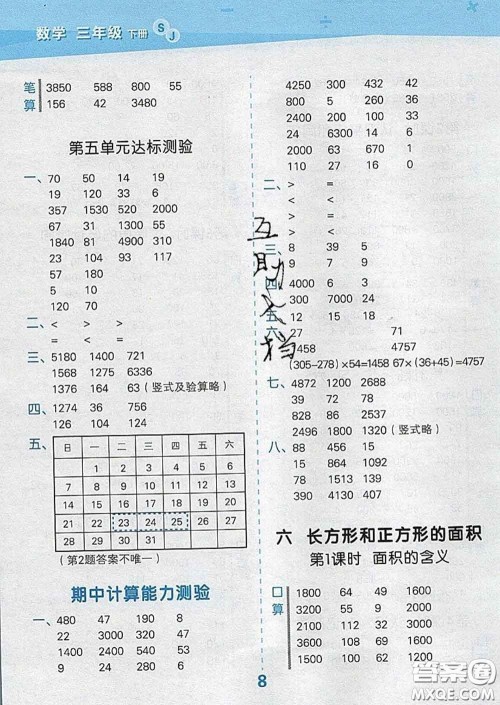 数学 三年级 下册 SJ
笔算 3850 588 800 55
156 42 3480
第五单元达标测验
一、70 50 14 19
19 120 33 6
357 1530 520 2000
67 31 1300 55
1840 81 4900 310
23 104 93 117
57 180
5 10
120 70
二、< > < >
< > = <
三、5180 1400 721
1568 1275 6336
1376 164 63(竖式及验算略)
四、1274 36 756
126 104 123
五、
日 一 二 三 四 五 六
1 2 3 4 5 6
7 8 9 10 11 12 13
14 15 16 17 18 19 20
21 22 23 24 25 26 27
28 29 30 31
(第2题答案不唯一)
期中计算能力测验
一、480 47 190 8
22 3000 447 2
12 1400 64 1300
9 24 280 660
4200 36 432 300
800 5 260 36
2000 40 42 33
6400 0 63 100
2000 660 1 171
110 27 16 0
二、> > =
< = >
< < <
三、8 39 5
9 7 24
四、4000 6 3
300 7000 18
五、12 15 24
六、27 71
2458 4757
(305-278)×54=1458 67×(36+45)=4757
七、4872 1200 2688
39 72 78
2496 1800 1320(竖式略)
八、88 456 15
15 864 1092
157 2730 14
3850 430 15
六 长方形和正方形的面积
第1课时 面积的含义
口算 1800 64 49 1600
3200 55 9 2000
2100 4000 112 32
3600 108 15 1000
1500 100 62 1200
互助文档
8
答案圈
MXQE.COM